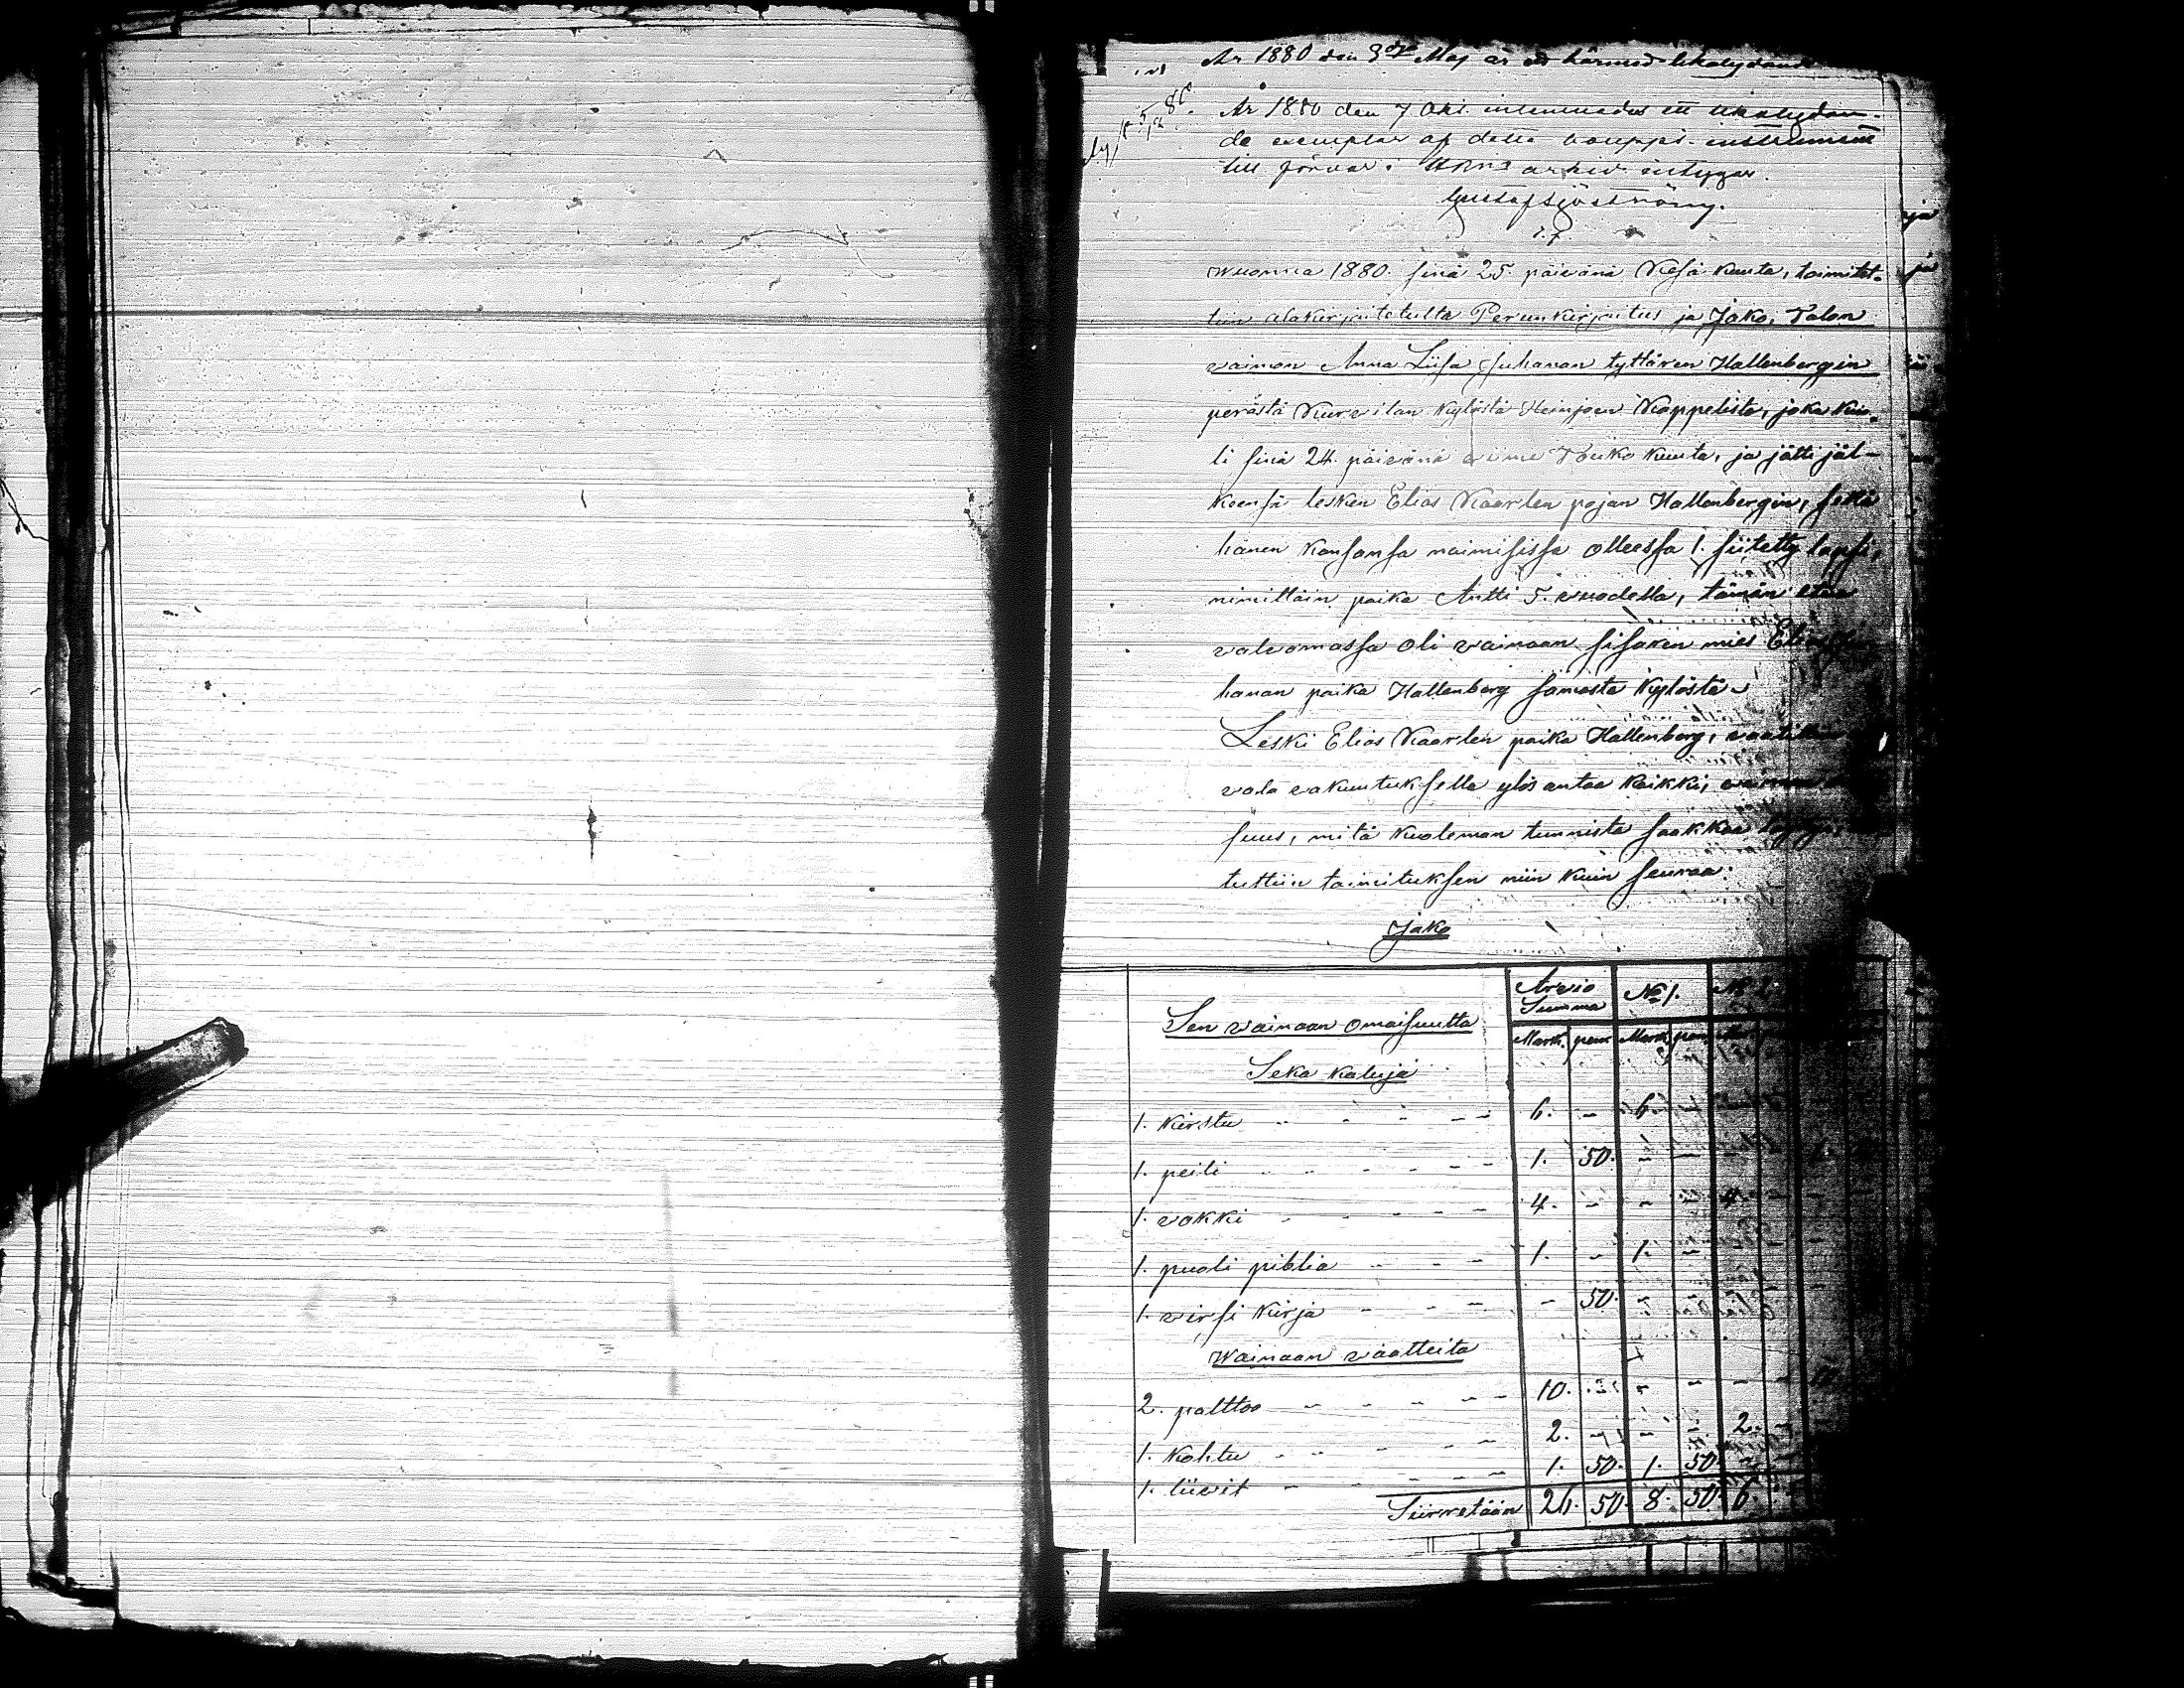 År 1880 den 3dje Maj är ett härmed likalydande
År 1880 den 7 Okt. inlemnades ett likalydan-
de exemplar af detta bouppt. instrument
till förvar i arkiv intygar.
Gustaf Sjöström.
Wuonna 1880. sinä 25. päivänä Kesä kuuta, toimitet-
tiin alakirjoitetuilta Perunkirjoitus ja Jako, Talon
vaimon Anna Liisa Juhanan tyttären Hallenbergin
perästä Kurvilan kylästä Heinjoen Kappelista, joka kuo-
li sinä 24. päivänä viime Touko kuuta, ja jätti jäl-
keensä lesken Elias Kaarlen pojan Hallenbergin, sekä
hänen kansansa naimisissa ollessa 1. siitetty lapsi,
nimittäin poika Antti 5. vuodella, tämän etua
valvomassa oli vainaan sisaren mies Elias Ju-
hanan poika Hallenberg samasta kylästä.
Leski Elias Kaarlen poika Hallenberg,
vala vakuutuksella ylös antaa kaikki,
suus, mitä kuoleman tunnista saakka
tettiin toimituksen niin kuin seuraa:
Jako
Sen vainaan omaisuutta Arvio Summa No 1. No 2.
Mark. pen. Mark. pen.
Seka kaluja
1. kirstu 6. - 6.
1. peili 1. 50. - - 1.
1. vokki 4. - - - 4.
1. puoli piblia 1. - 1. -
1. virsi kirja - 50. - -
Wainaan vaatteita
2. palttoo 10. - - - - - 10.
1. kohtu 2. - - - 2. -
1. liivit 1. 50. 1. 50. -
Siirretään 26. 50. 8. 50. 6.